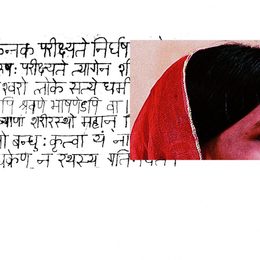 कनक परीक्ष्यते निर्घष
षः परीक्ष्यते त्यागेन शी
श्वरो लोके सत्ये धर्म
पि श्रवणे भाषणेऽपि वा ।
शरीरस्थो महान्
बन्धुः कृत्वा यं ना
न रथस्य